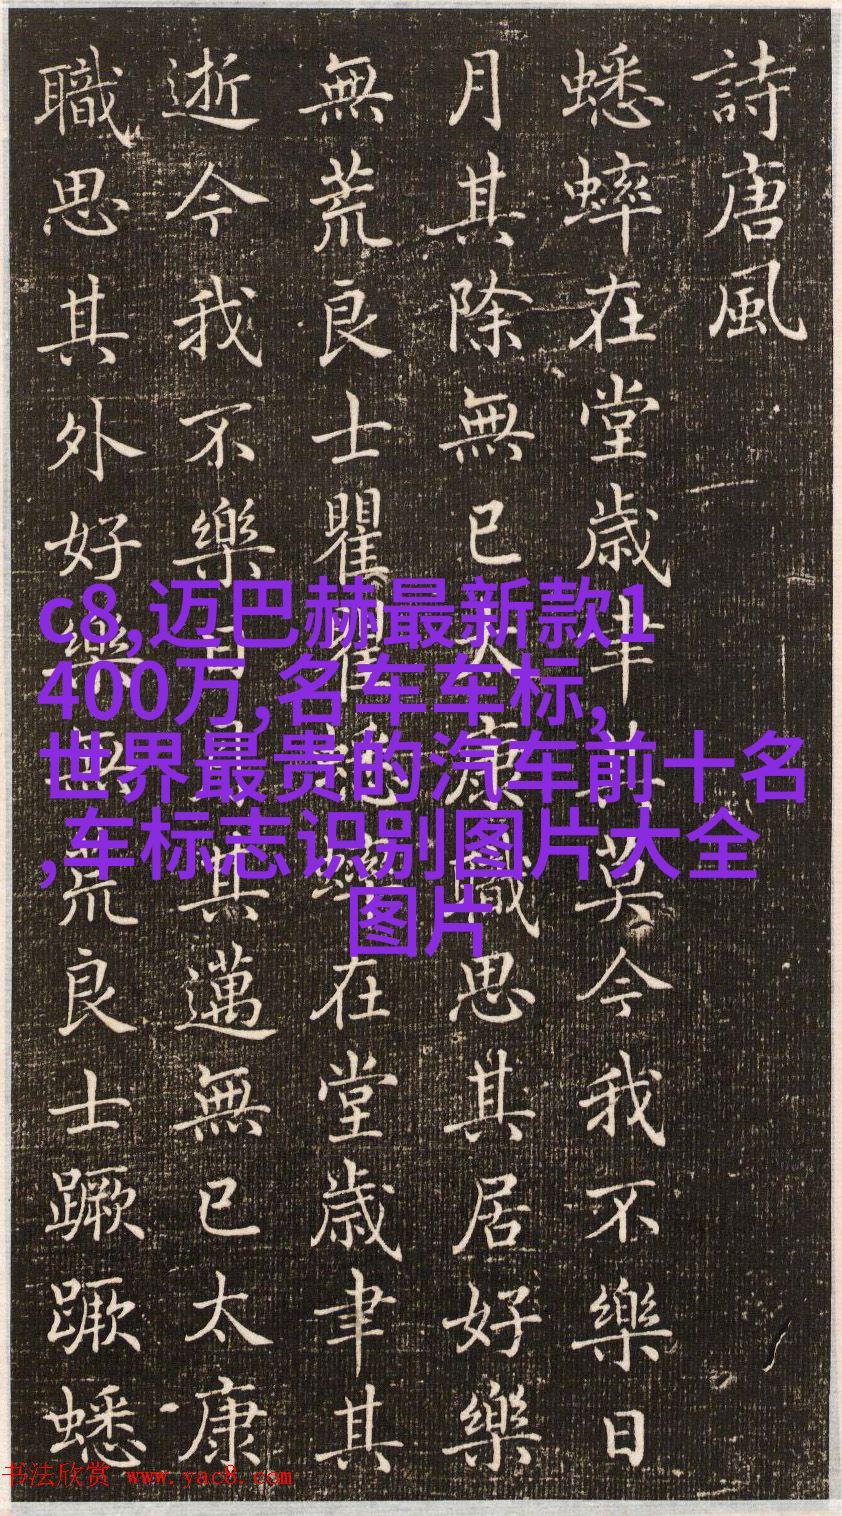 詩唐風
蟋蟀在堂歳聿其莫今我不樂日
月其除無已大康職思其居好樂
無荒良士瞿瞿蟋蟀在堂歳聿其
逝今我不樂日月其邁無已太康
職思其外好樂無荒良士蹶蹶蟋
c8,迈巴赫最新款1
400万,名车车标,
世界最贵的汽车前十名
,车标志识别图片大全
图片
书法欣赏 www.yac8.com